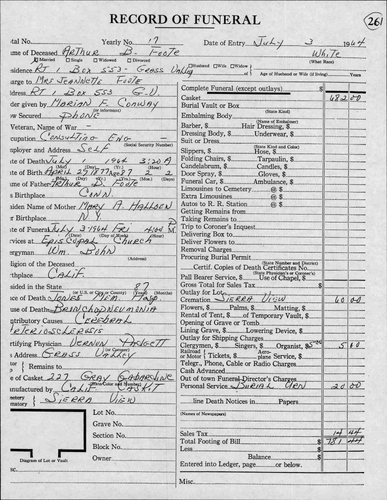 RECORD OF FUNERAL
261
tal No. Yearly No. 17 Date of Entry July 3 1964
me of Deceased Arthur B. Foote White
Married Single Widowed Divorced (What Race)
esidence Rt 1 Box 553 - Grass Valley Husband Wife Widow
Age of Husband or Wife (if living) Years
arge to Mrs Jeannette Foote
Address Rt 1 Box 553 G.V.
der given by Marian F. Conway
(or informant)
w Secured Phone
Veteran, Name of War -
cupation Consulting Eng -
ployer and Address Self
te of Death July 1 1964 3:20 A
te of Birth April 29 1877 Age 87 2 2
me of Father Arthur D. Foote
s Birthplace Conn
iden Name of Mother Mary A. Hallock
r Birthplace N.Y.
te of Funeral July 3 1964 Fri
rvices at Episcopal Church
ergyman Wm. Bohn
ligion of the Deceased
thplace Calif
sided in the State 87
ce of Death Jones Mem. Hosp.
use of Death Bronchopneumonia
ntributory Causes Cerebral
Arteriosclerosis
rtifying Physician Vernon Padgett
s Address Grass Valley
Remains to
e of Casket 227 Gray Gabardine
anufactured by Calif Caskit
metery Sierra View
matory
Lot No.
Grave No.
Section No.
Block No.
Owner
Diagram of Lot or Vault
Complete Funeral (except outlays) $
Casket 682 00
Burial Vault or Box
(State Kind)
Embalming Body
(Name of Embalmer)
Barber, $ Hair Dressing, $
Dressing Body, $ Underwear, $
Suit or Dress
(State Kind and Color)
Slippers, $ Hose, $
Folding Chairs, $ Tarpaulin, $
Candelabrum, $ Candles, $
Door Spray, $ Gloves, $
Funeral Car, $ Ambulance, $
Limousines to Cemetery @ $
Extra Limousines @ $
Autos to R. R. Station @ $
Getting Remains from
Taking Remains to
Trip to Coroner's Inquest
Delivering Box to
Deliver Flowers to
Removal Charges
Procuring Burial Permit
(State Number and District)
Certif. Copies of Death Certificates No.
(State Physician's or Coroner's)
Pall Bearer Service, $ Use of Chapel, $
Gross Total for Sales Tax $
Outlay for Lot
Cremation Sierra View 60 00
Flowers, $ Palms, $ Matting, $
Rental of Tent, $ of Temporary Vault, $
Opening of Grave or Tomb
Lining Grave, $ Lowering Device, $
Outlay for Shipping Charges
Clergymen, $ Singers, $ Organist, $ 5 00
Railroad Aero-
or Motor Tickets, $ plane Service, $
Telgr., Phone, Cable or Radio Charges
Cash Advanced
Out of town Funeral Director's Charges
Personal Service Burial Urn 20 00
line Death Notices in Papers
(Names of Newspapers)
Sales Tax 14 44
Total Footing of Bill $ 781 44
Less $
Balance $
Entered into Ledger, page or below.
Misc.